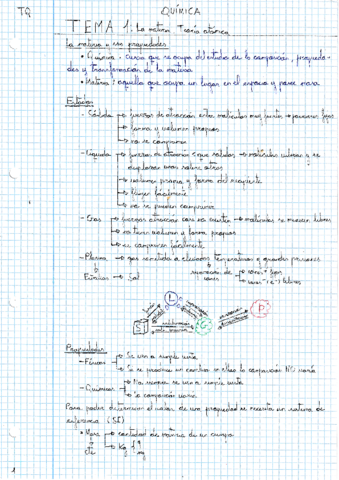 TQ
QUÍMICA
TEMA 1: La materia. Teoría atómica
La materia y sus propiedades
• Química: Ciencia que se ocupa del estudio de la composición, propieda-
des y transformación de la materia
• Materia: aquello que ocupa un lugar en el espacio y posee masa
Estados
- Sólido → fuerzas de atracción entre moléculas muy fuertes → posiciones fijas
→ forma y volumen propios
→ no se comprime
- Líquido → fuerzas de atracción < que sólidos → moléculas vibran y se
desplazan unas sobre otras
→ volumen propio y forma del recipiente
→ fluyen fácilmente
→ no se pueden comprimir
- Gas → fuerzas atracción casi no existen → moléculas se mueven libres
→ no tienen volumen y forma propios
→ se comprimen fácilmente
- Plasma → gas sometido a elevadas temperaturas y grandes presiones
Estrellas → Sol
separación de
iones
libres
S
L
G
P
Propiedades
- Físicas → Se ven a simple vista
→ Si se produce un cambio en ellas la composición NO varía
- Químicas → No siempre se ven a simple vista
→ la composición varía
Para poder determinar el valor de una propiedad se necesita un sistema de
referencia (SI)
• Masa → cantidad de materia de un cuerpo
cte
→ Kg
mg
1